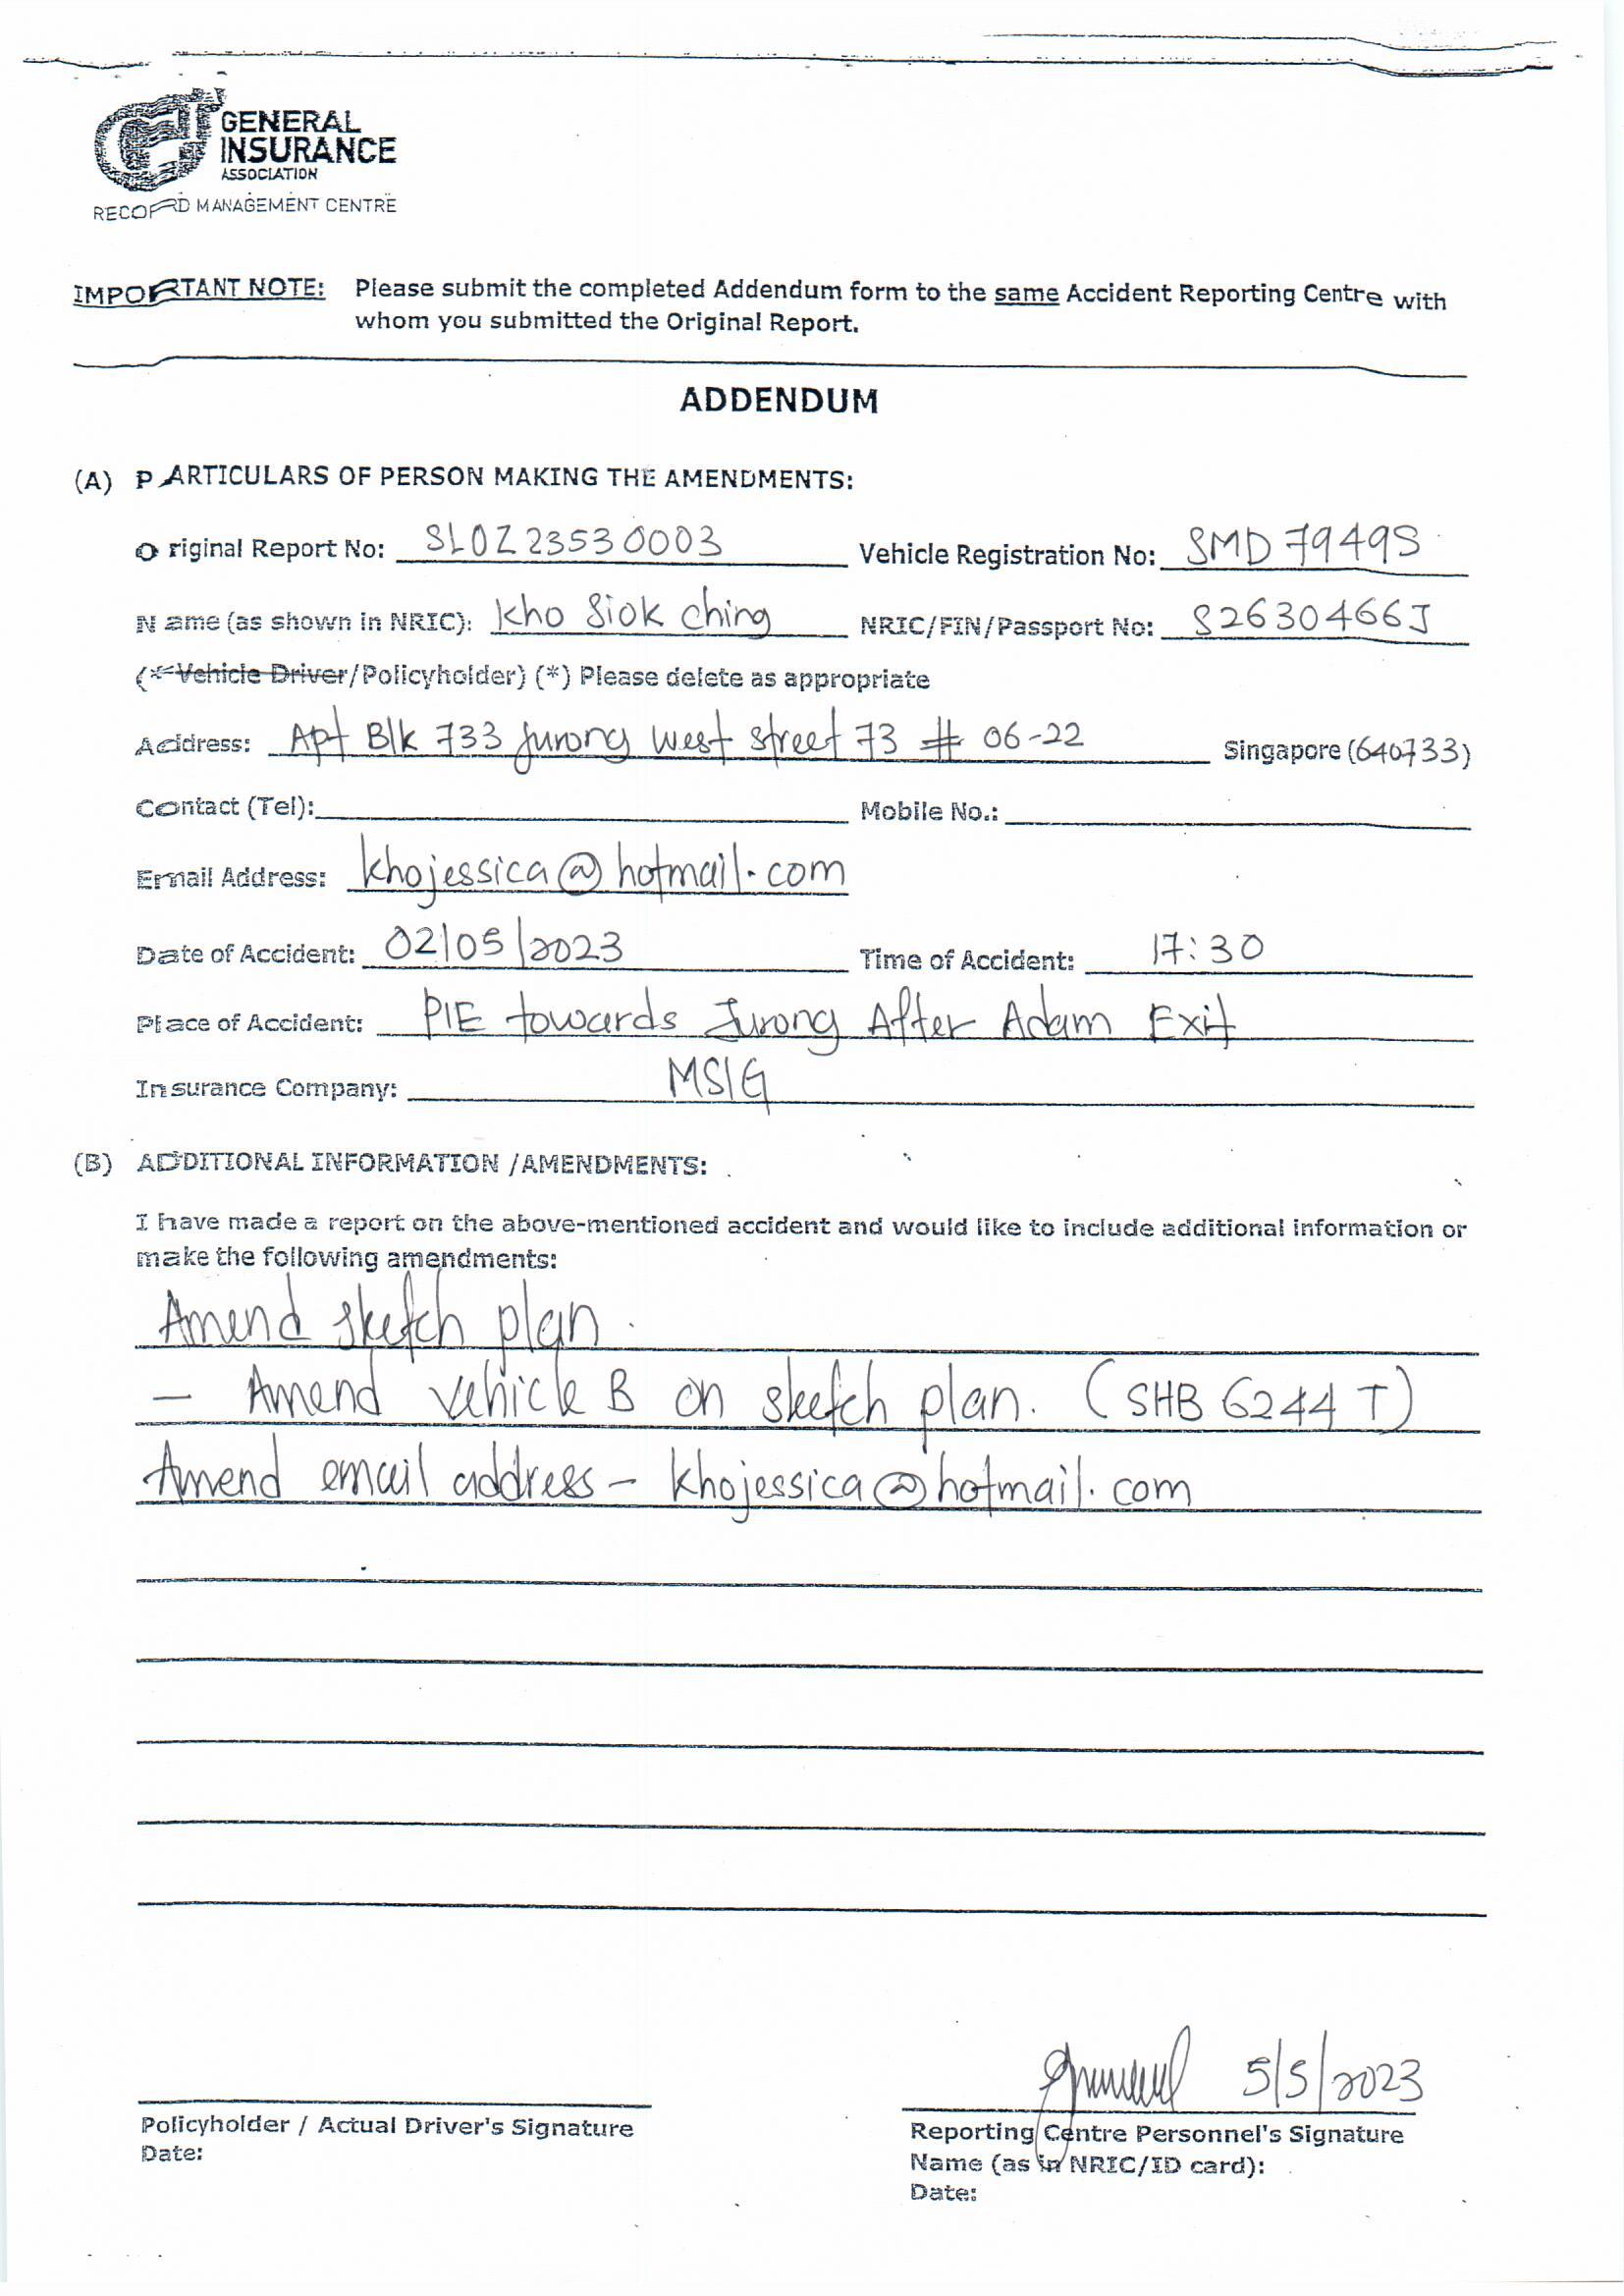 GENERAL
INSURANCE
ASSOCIATION
RECORD MANAGEMENT CENTRE
IMPORTANT NOTE: Please submit the completed Addendum form to the same Accident Reporting Centre with
whom you submitted the Original Report.
ADDENDUM
(A) PARTICULARS OF PERSON MAKING THE AMENDMENTS:
Original Report No: SLOZ23530003 Vehicle Registration No: SMD7949S
Name (as shown in NRIC): Kho Siok Ching NRIC/FIN/Passport No: S2630466J
(*Vehicle Driver/Policyholder) (*) Please delete as appropriate
Address: Apt Blk 733 Jurong West Street 73 # 06-22 Singapore (640733)
Contact (Tel): Mobile No.:
Email Address: khojessica@hotmail.com
Date of Accident: 02/05/2023 Time of Accident: 17:30
Place of Accident: PIE towards Jurong After Adam Exit
Insurance Company: MSIG
(B) ADDITIONAL INFORMATION /AMENDMENTS:
I have made a report on the above-mentioned accident and would like to include additional information or
make the following amendments:
Amend sketch plan.
- Amend vehicle B on sketch plan. (SHB 6244 T)
Amend email address - khojessica@hotmail.com
5/5/2023
Policyholder / Actual Driver's Signature Reporting Centre Personnel's Signature
Date: Name (as in NRIC/ID card):
Date: